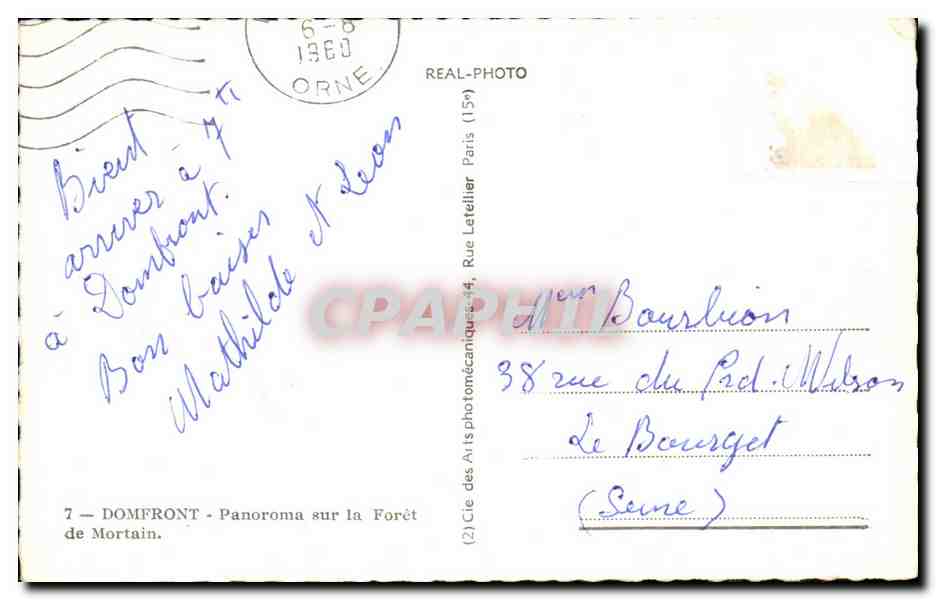 6-8
1960
ORNE
REAL-PHOTO
Bient
arriver à 7 H
à Domfront.
Bon baisers
Mathilde Leon
7 — DOMFRONT - Panoroma sur la Forêt
de Mortain.
(2) Cie des Arts photomécaniques-44, Rue Letellier Paris (15e)
CPAPHIL
Bourbion
38 rue du Prd. Wilson
Le Bourget
(Seine)